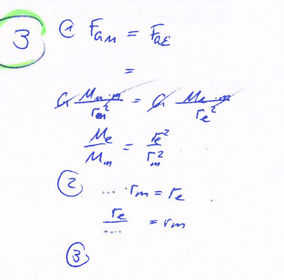 3 ① F_GM = F_GE
=
G M_m·m / r_m² = G M_e·m / r_e²
M_e / M_m = r_e² / r_m²
② ... · r_m = r_e
r_e / .... = r_m
③